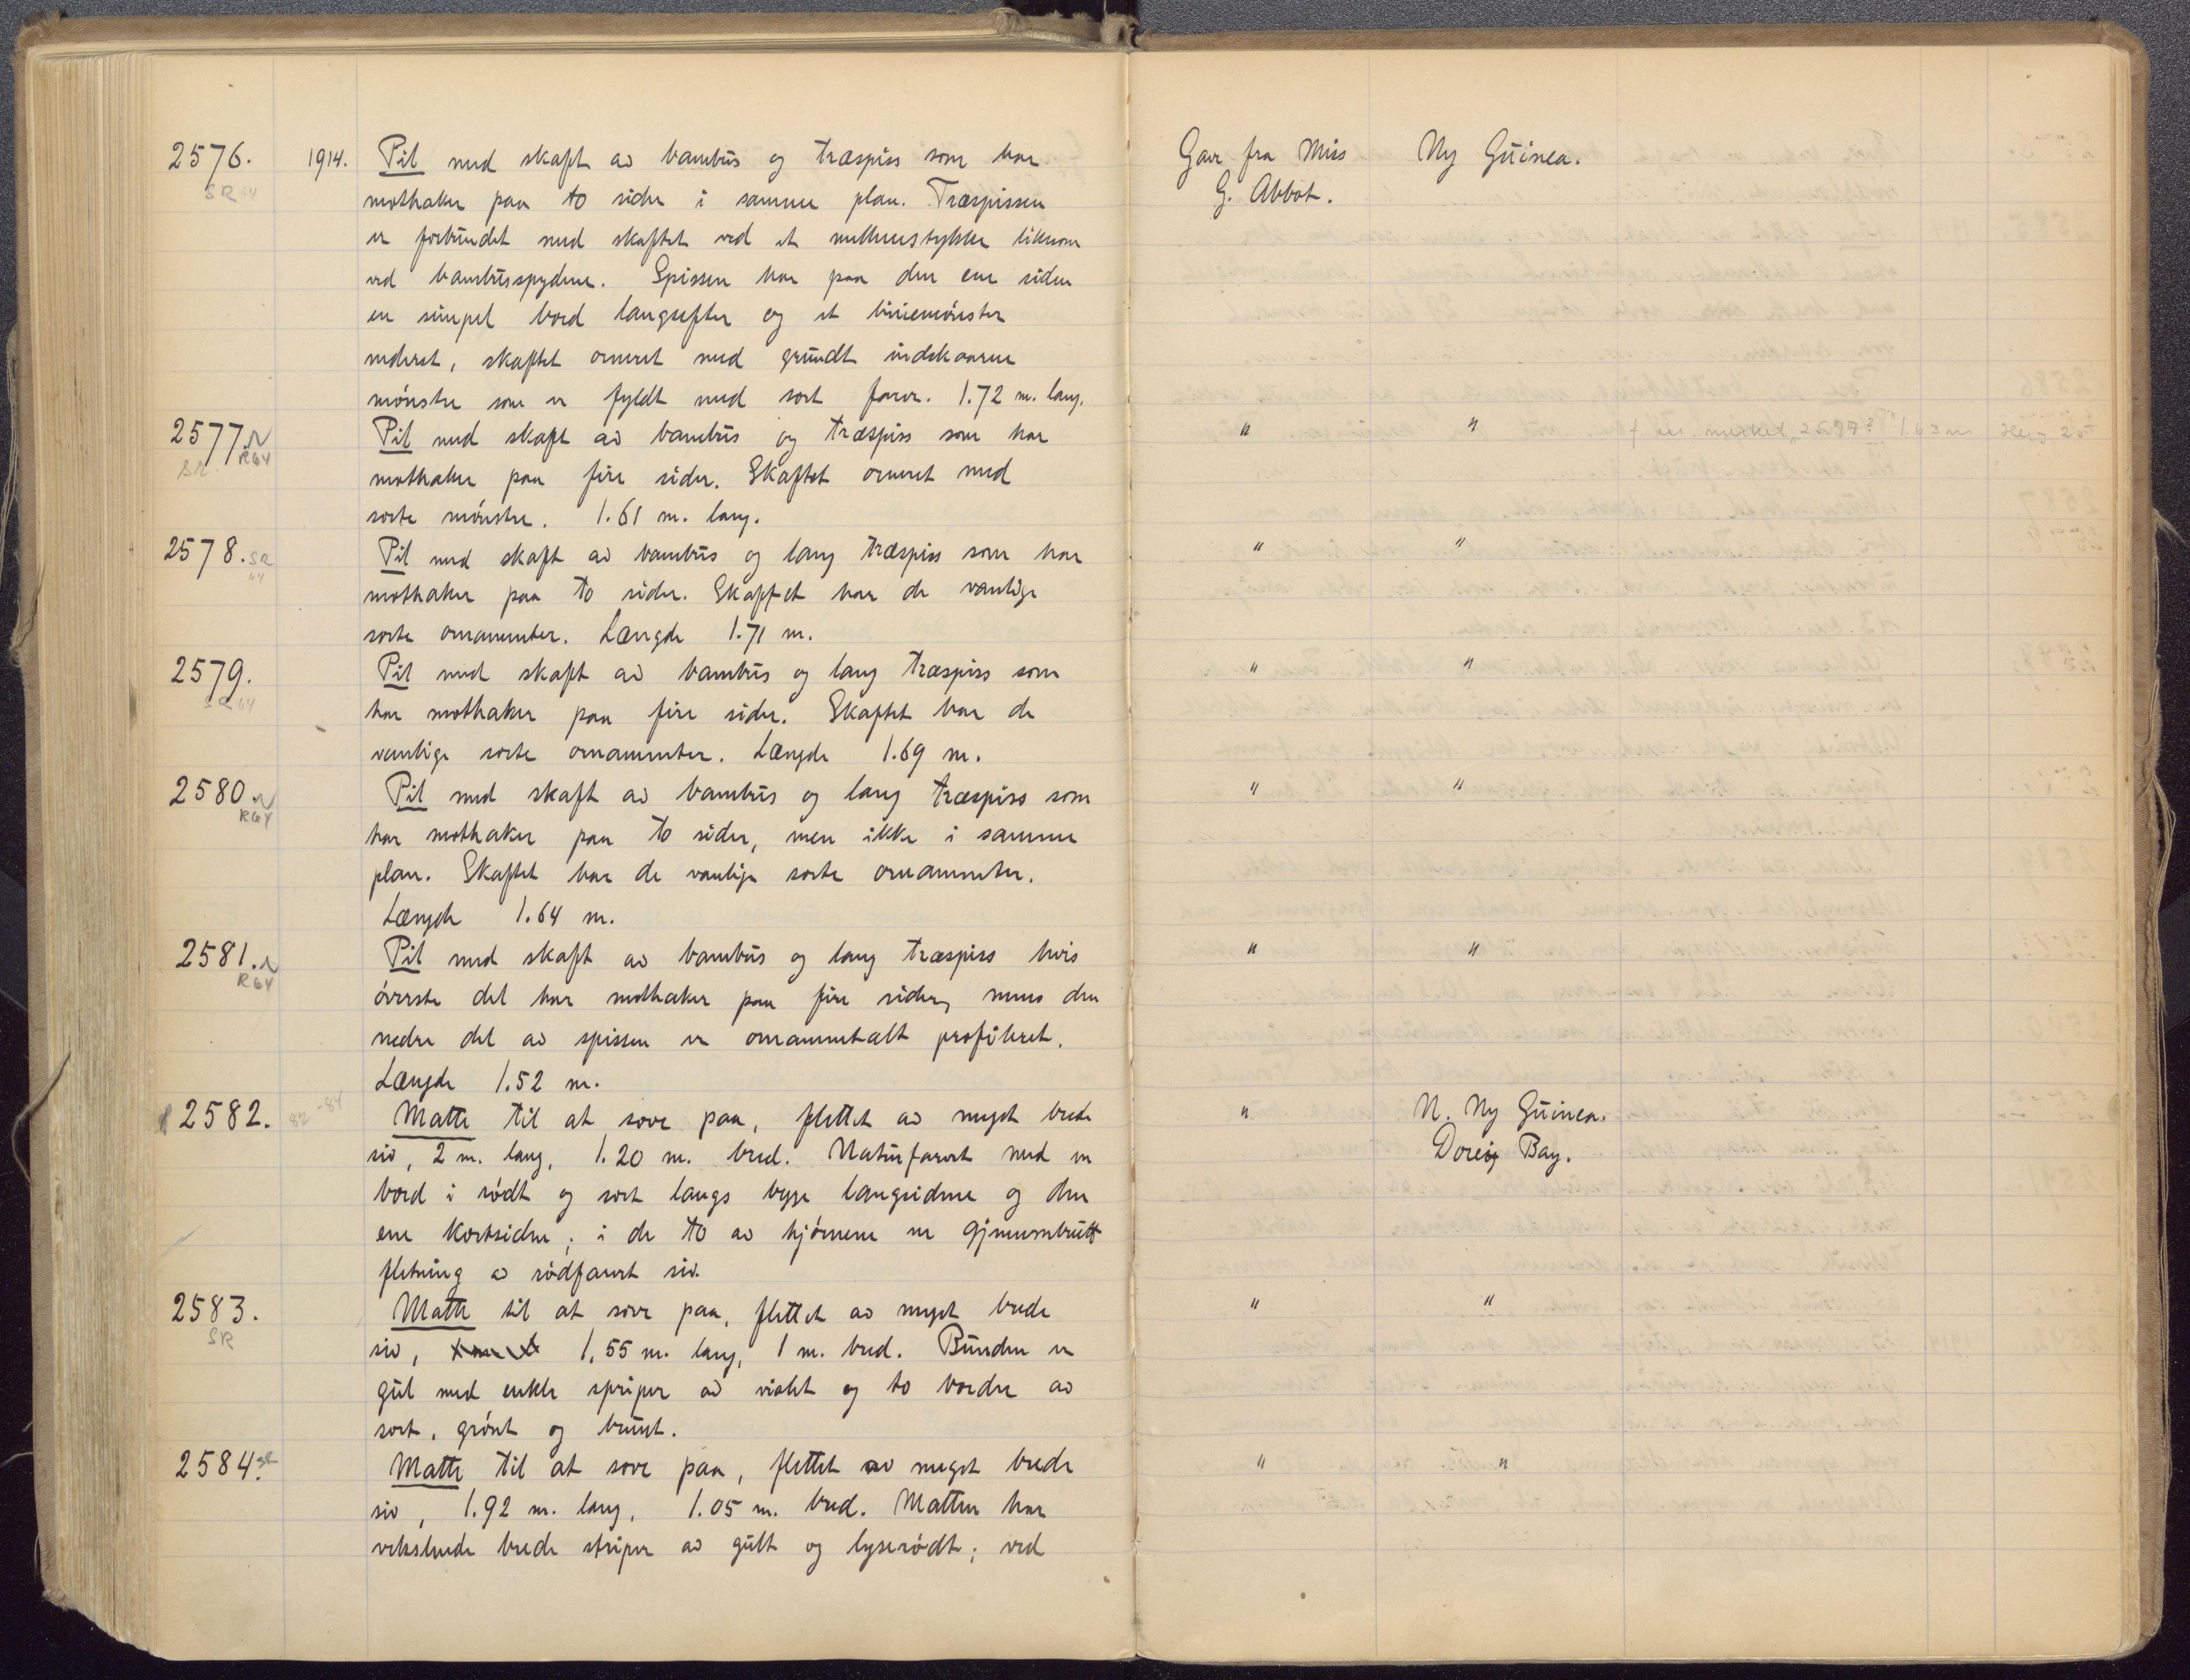 2576. 1914. Pil med skaft av bambus og træspiss som har Gave fra Miss Ny Guinea.
SR 64 mothaker paa to sider i samme plan. Træspissen G. Abbot.
er forbundet med skaftet ved et mellemstykke liksom
ved bambusspydene. Spissen har paa den ene siden
en simpel bord langsefter og et liniemønster
nederst, skaftet orneret med grundt indskaarne
mønstre som er fyldt med sort farve. 1.72 m. lang.
2577. Pil med skaft av bambus og træspiss som har " " 1 en merket 2577? 1.63 m
SR R64 mothaker paa fire sider. Skaftet orneret med
sorte mønstre. 1.61 m. lang.
2578. SR Pil med skaft av bambus og lang træspiss som har " "
64 mothaker paa to sider. Skaftet har de vanlige
sorte ornamenter. Længde 1.71 m.
2579. Pil med skaft av bambus og lang træspiss som " "
SR 64 har mothaker paa fire sider. Skaftet har de
vanlige sorte ornamenter. Længde 1.69 m.
2580. Pil med skaft av bambus og lang træspiss som " "
R64 har mothaker paa to sider, men ikke i samme
plan. Skaftet har de vanlige sorte ornamenter.
Længde 1.64 m.
2581. Pil med skaft av bambus og lang træspiss hvis " "
R64 øverste del har mothaker paa fire sider, mens den
nedre del av spissen er ornamentalt profileret.
Længde 1.52 m.
2582. 82-84 Matte til at sove paa, flettet av meget brede " N. Ny Guinea.
siv, 2 m. lang, 1.20 m. bred. Naturfarvet med en Dorey Bay.
bord i rødt og sort langs begge langsidene og den
ene kortsiden; i de to av hjørnene er gjennembrutt
fletning av rødfarvet siv.
2583. Matte til at sove paa, flettet av meget brede " "
SR siv, 1.55 m. lang, 1 m. bred. Bunden er
gul med enkle striper av violet og to border av
sort, grønt og brunt.
2584. SR Matte til at sove paa, flettet av meget brede " "
siv, 1.92 m. lang, 1.05 m. bred. Matten har
vekslende brede striper av gult og lyserødt; ved